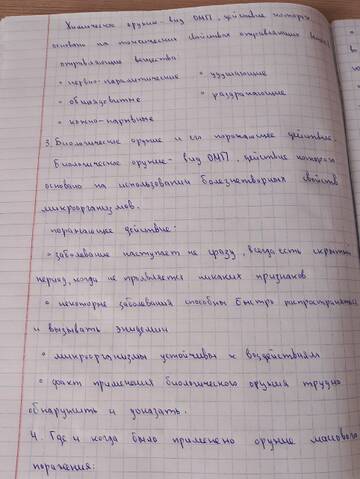 Химическое оружие - вид ОМП, действие которого
основано на токсических свойствах отравляющих веществ
отравляющие вещества
• нервно-паралитические • удушающие
• общеядовитые • раздражающие
• кожно-нарывные
3. Биологическое оружие и его поражающее действие.
Биологическое оружие - вид ОМП, действие которого
основано на использовании болезнетворных свойств
микроорганизмов.
поражающее действие:
• заболевание наступает не сразу, всегда есть скрытый
период, когда не проявляется никаких признаков
• некоторые заболевания способны быстро распространяться
и вызывать эпидемии
• микроорганизмы устойчивы к воздействиям
• факт применения биологического оружия трудно
обнаружить и доказать.
4. Где и когда было применено оружие массового
поражения: